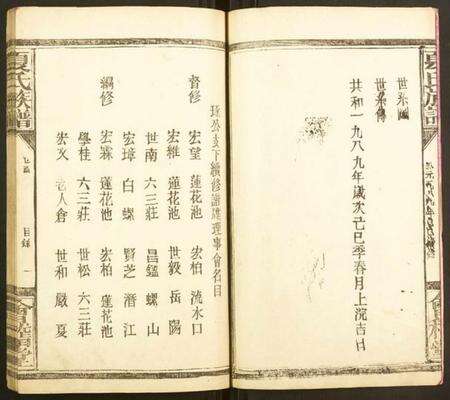 世系圖
世系傳
共和一九八九年歲次己巳季春月上浣吉日
公支下續修譜牒理事會名目
督修 宏望 蓮花池 宏柏 流水口
宏維 蓮花池 世毅 岳陽
世南 六三莊 昌鑑 螺山
宏璋 白螺 賢芝 潛江
編修 宏霖 蓮花池 宏柏 蓮花池
學桂 六三莊 世松 六三莊
宏文 老人倉 世和 嚴夏
夏氏族譜
目錄 一
會稽堂
夏氏族譜
會稽堂